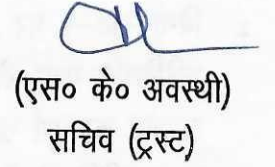 (एस० के० अवस्थी)
सचिव (ट्रस्ट)